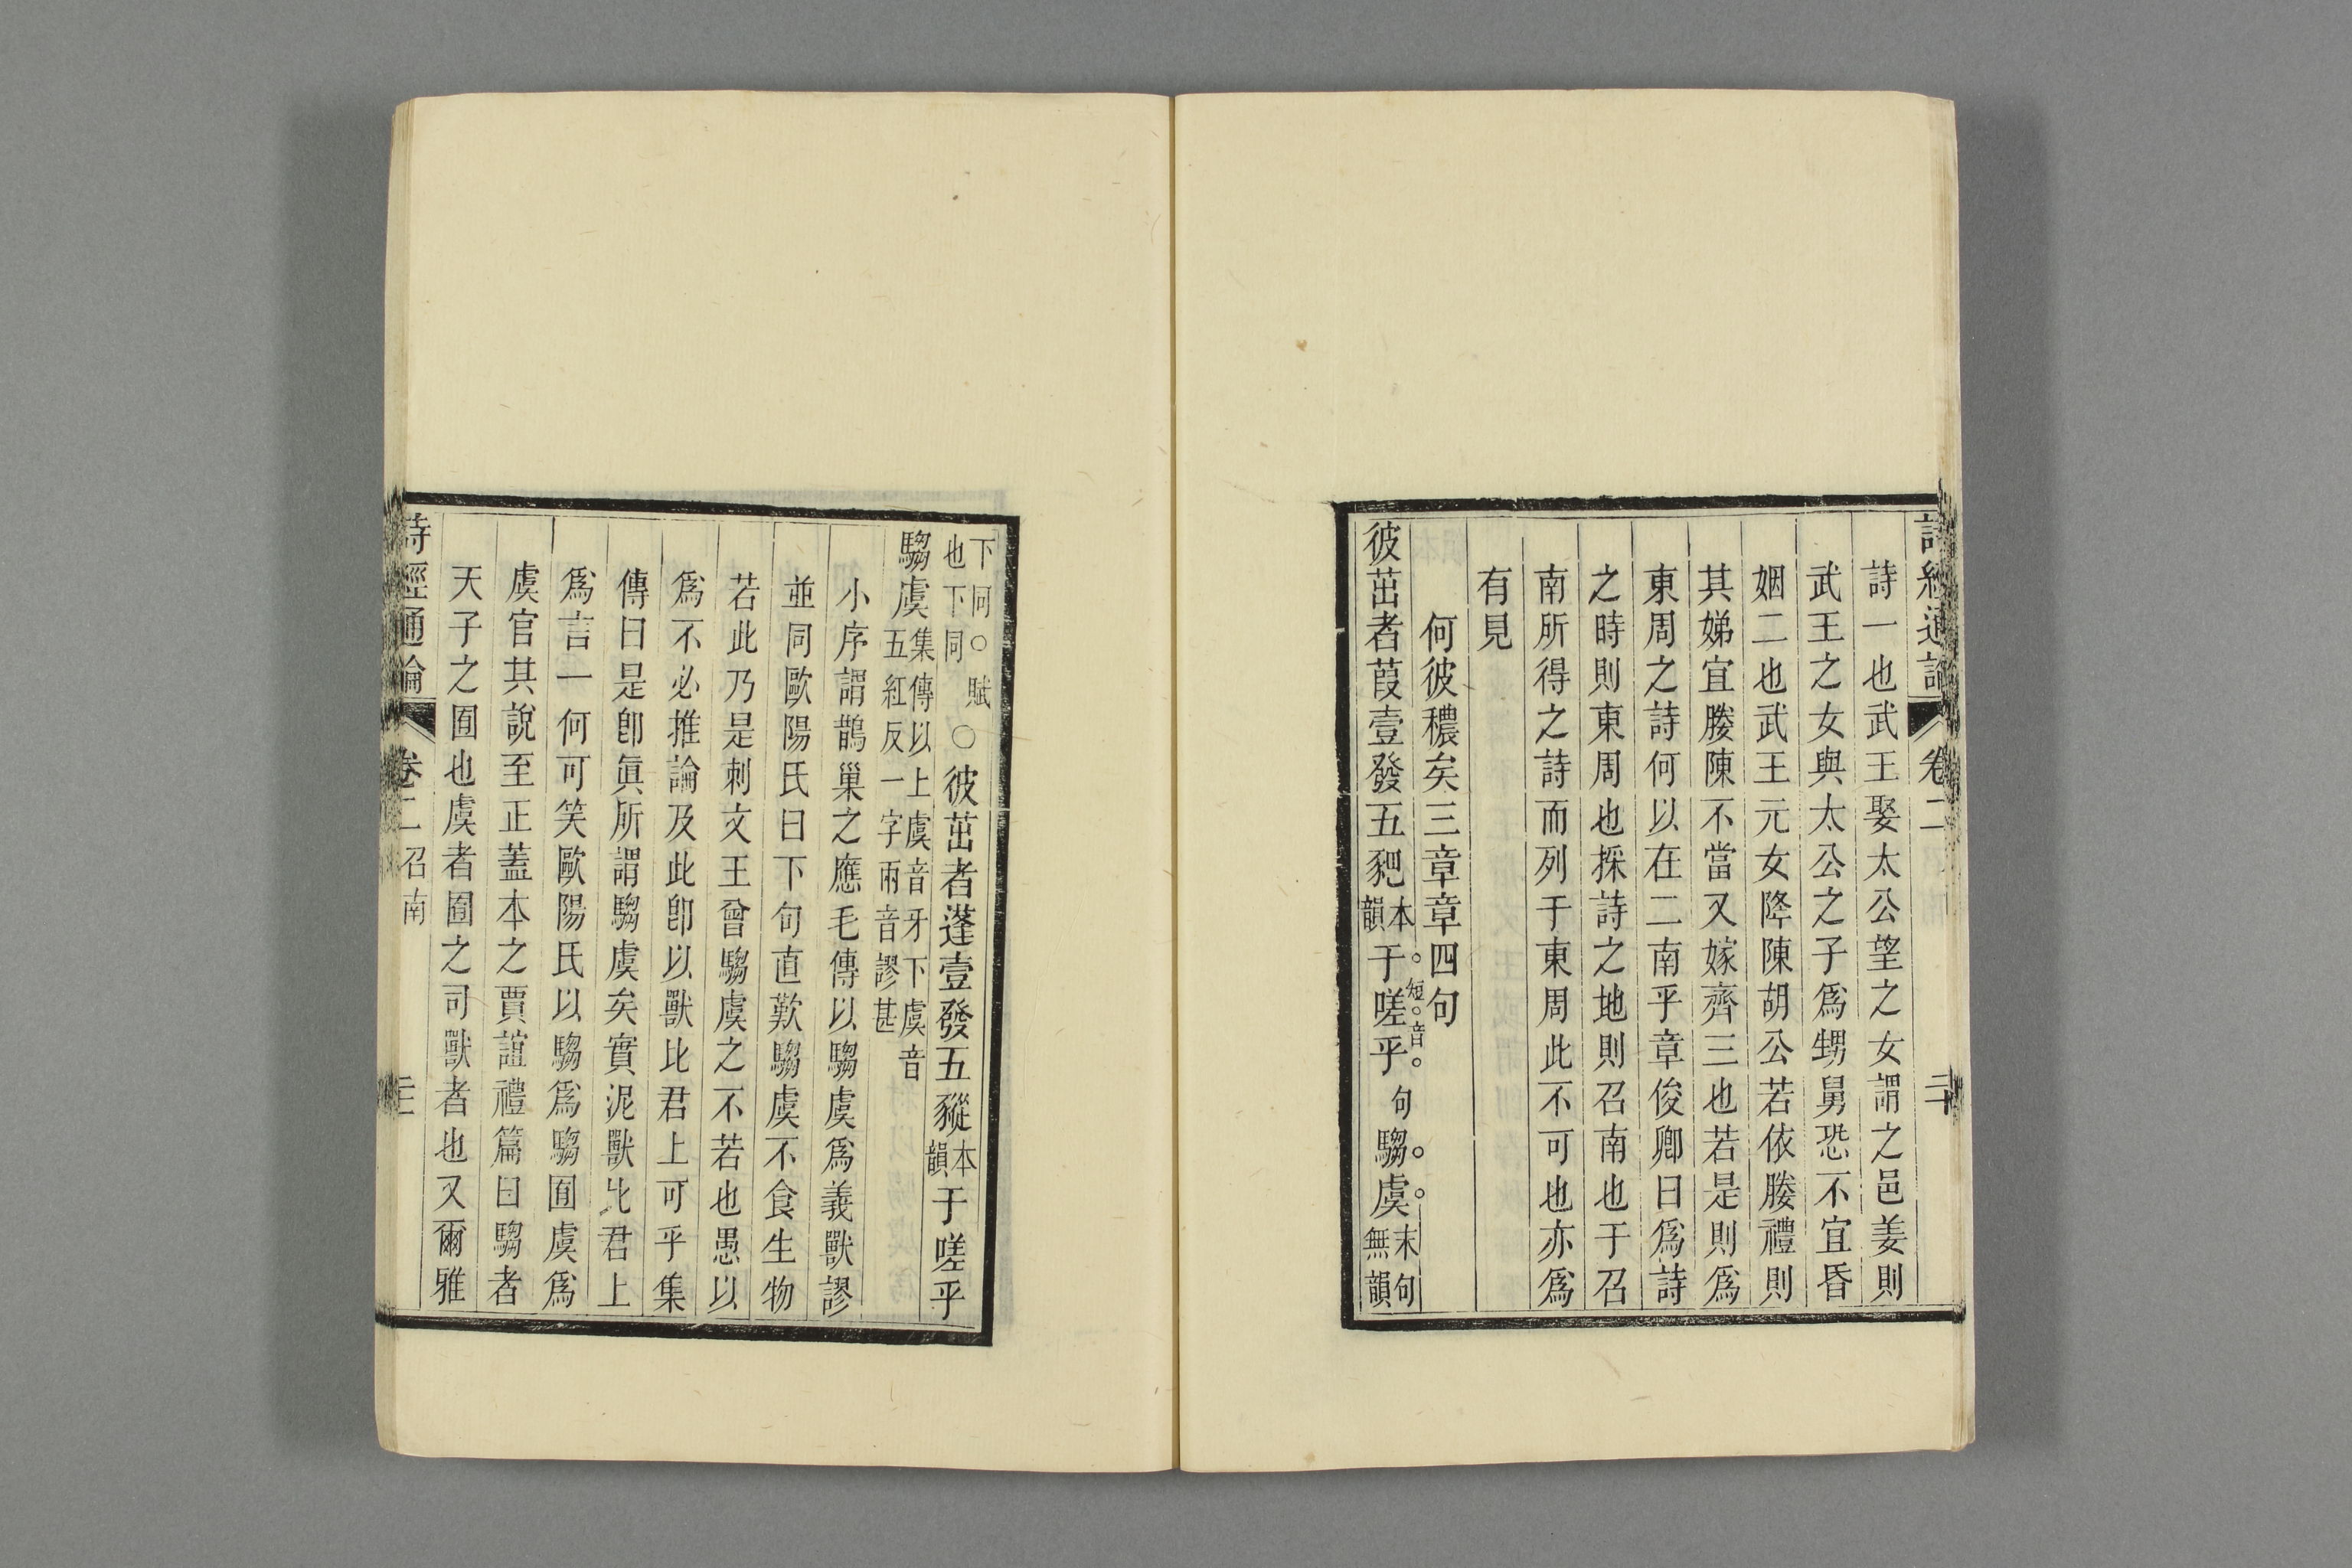 詩經通論 卷二 二十
詩一也武王娶太公望之女謂之邑姜則
武王之女與太公之子爲甥舅恐不宜昏
姻二也武王元女降陳胡公若依媵禮則
其娣宜媵陳不當又嫁齊三也若是則爲
東周之詩何以在二南乎章俊卿曰爲詩
之時則東周也採詩之地則召南也于召
南所得之詩而列于東周此不可也亦爲
有見
何彼穠矣三章章四句
彼茁者葭壹發五豝本韻于嗟乎短音句騶虞末句無韻
下同○賦也下同○彼茁者蓬壹發五豵本韻于嗟乎
騶虞集傳以上虞音牙下虞音五紅反一字兩音謬甚
小序謂鵲巢之應毛傳以騶虞爲義獸謬
並同歐陽氏曰下句直歎騶虞不食生物
若此乃是刺文王曾騶虞之不若也愚以
爲不必推論及此卽以獸比君上可乎集
傳曰是卽眞所謂騶虞矣實泥獸比君上
爲言一何可笑歐陽氏以騶爲騶囿虞爲
虞官其說至正蓋本之賈誼禮篇曰騶者
天子之囿也虞者囿之司獸者也又爾雅
詩經通論 卷二召南